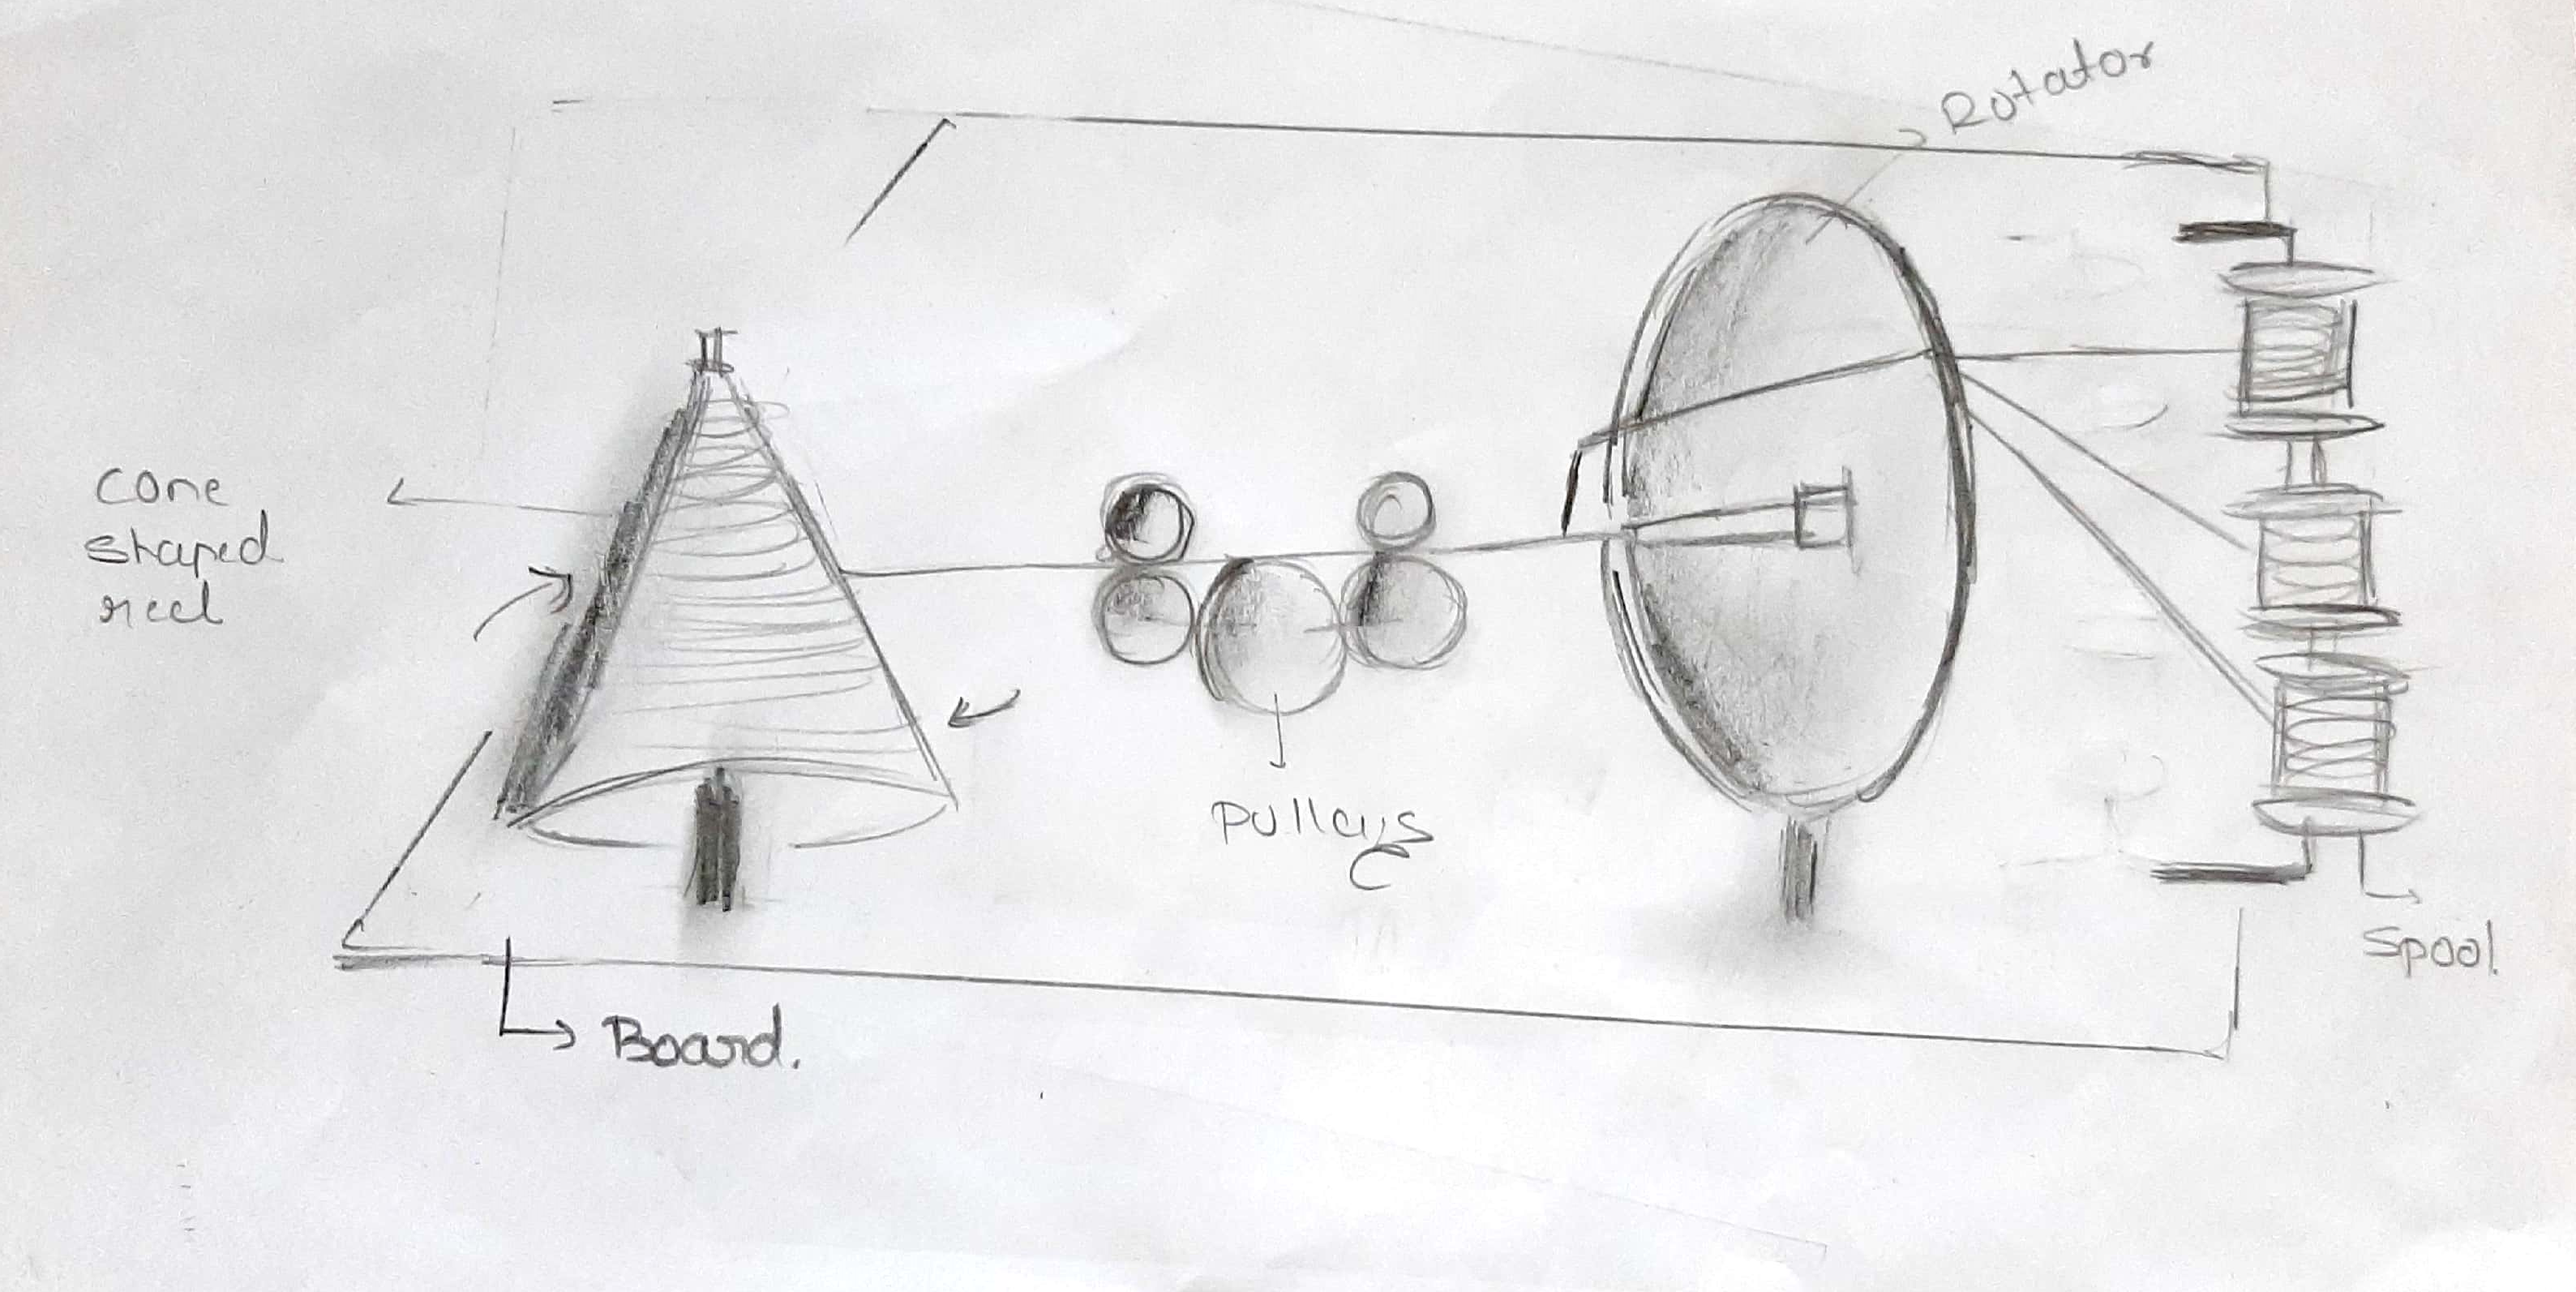 Rotator
cone
shaped
reel
pulleys
Spool.
Board.